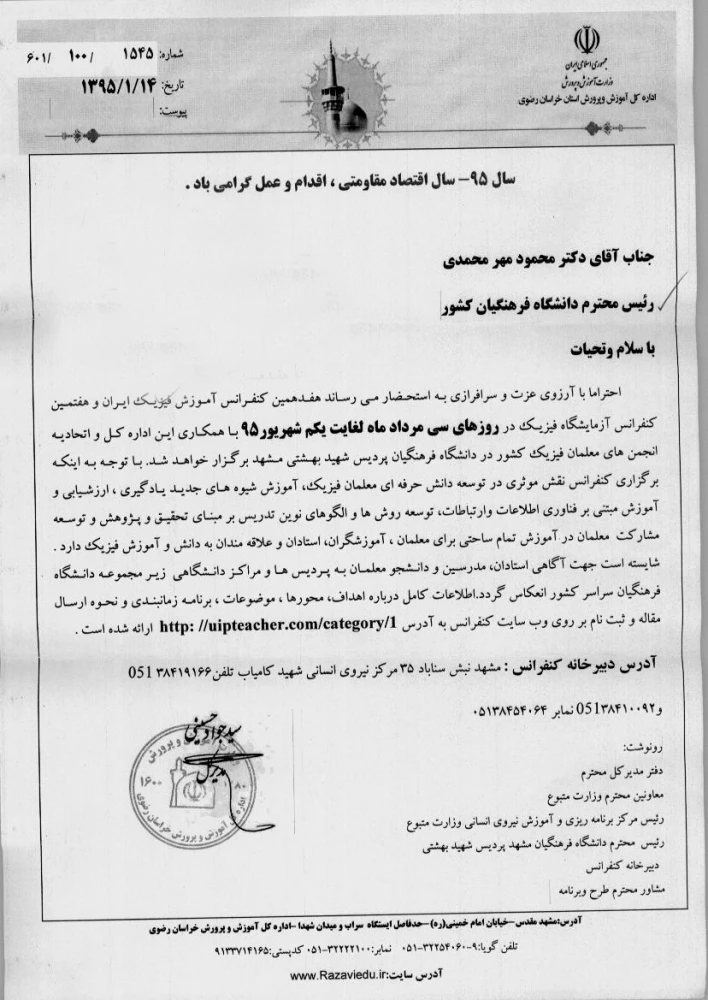 جمهوری اسلامی ایران
وزارت آموزش و پرورش
اداره کل آموزش وپرورش استان خراسان رضوی
شماره: ۱۵۴۵ /۱۰۰ /۶۰۱
تاریخ: ۱۳۹۵/۱/۱۴
پیوست:
سال ۹۵- سال اقتصاد مقاومتی ، اقدام و عمل گرامی باد .
جناب آقای دکتر محمود مهر محمدی
رئیس محترم دانشگاه فرهنگیان کشور
با سلام وتحیات
احتراما با آرزوی عزت و سرافرازی به استحضار می رساند هفدهمین کنفرانس آموزش فیزیک ایران و هفتمین
کنفرانس آزمایشگاه فیزیک در روزهای سی مرداد ماه لغایت یکم شهریور۹۵ با همکاری این اداره کل و اتحادیه
انجمن های معلمان فیزیک کشور در دانشگاه فرهنگیان پردیس شهید بهشتی مشهد برگزار خواهد شد. با توجه به اینکه
برگزاری کنفرانس نقش موثری در توسعه دانش حرفه ای معلمان فیزیک، آموزش شیوه های جدید یادگیری ، ارزشیابی و
آموزش مبتنی بر فناوری اطلاعات وارتباطات، توسعه روش ها و الگوهای نوین تدریس بر مبنای تحقیق و پژوهش و توسعه
مشارکت معلمان در آموزش تمام ساحتی برای معلمان ، آموزشگران، استادان و علاقه مندان به دانش و آموزش فیزیک دارد .
شایسته است جهت آگاهی استادان، مدرسین و دانشجو معلمان به پردیس ها و مراکز دانشگاهی زیر مجموعه دانشگاه
فرهنگیان سراسر کشور انعکاس گردد.اطلاعات کامل درباره اهداف، محورها ، موضوعات ، برنامه زمانبندی و نحوه ارسال
مقاله و ثبت نام بر روی وب سایت کنفرانس به آدرس http: //uipteacher.com/category/1 ارائه شده است .
آدرس دبیرخانه کنفرانس : مشهد نبش سناباد ۳۵ مرکز نیروی انسانی شهید کامیاب تلفن۳۸۴۱۹۱۶۶ 051
و۳۸۴۱۰۰۹۲051 نمابر ۰۵۱۳۸۴۵۴۰۶۴
سید جواد حسینی
مدیر کل
رونوشت:
دفتر مدیر کل محترم
معاونین محترم وزارت متبوع
رئیس مرکز برنامه ریزی و آموزش نیروی انسانی وزارت متبوع
رئیس محترم دانشگاه فرهنگیان مشهد پردیس شهید بهشتی
دبیرخانه کنفرانس
مشاور محترم طرح وبرنامه
آدرس:مشهد مقدس -خیابان امام خمینی(ره) -حدفاصل ایستگاه سراب و میدان شهدا -اداره کل آموزش و پرورش خراسان رضوی
تلفن گویا:۹-۳۲۲۵۴۰۶۰-۰۵۱ نمابر:۳۲۲۲۲۱۰۰-۰۵۱ کدپستی:۹۱۳۳۷۱۴۱۶۵
آدرس سایت:www.Razaviedu.ir